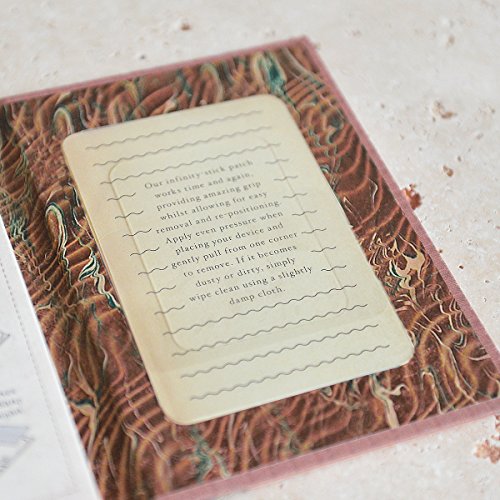 Our infinity stick patch
works time and again,
providing amazing grip
whilst allowing for easy
removal and re-positioning.
Apply even pressure when
placing your device and
gently pull from one corner
to remove. If it becomes
dusty or dirty, simply
wipe clean using a slightly
damp cloth.